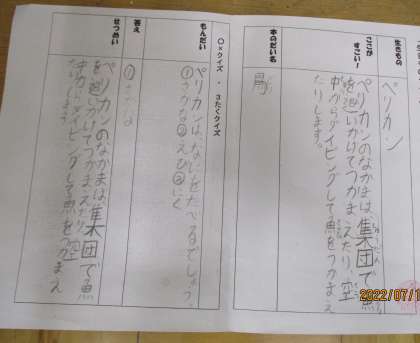 生きもの
ペリカン
ここが
すごい!
ペリカンのなかまは集団で魚
を追いかけてつかまえたり、空
中からダイビングして魚をつかまえ
たりします。
本のだい名
〇×クイズ ・ 3たくクイズ
もんだい
ペリカンは、なにをたべるでしょう。
①さかな②えび③にく
答え
①さかな
せつめい
ペリカンのなかまは、集団で魚
を追いかけてつかまえたり、空
中からダイビングして魚をつかまえ
たりします。